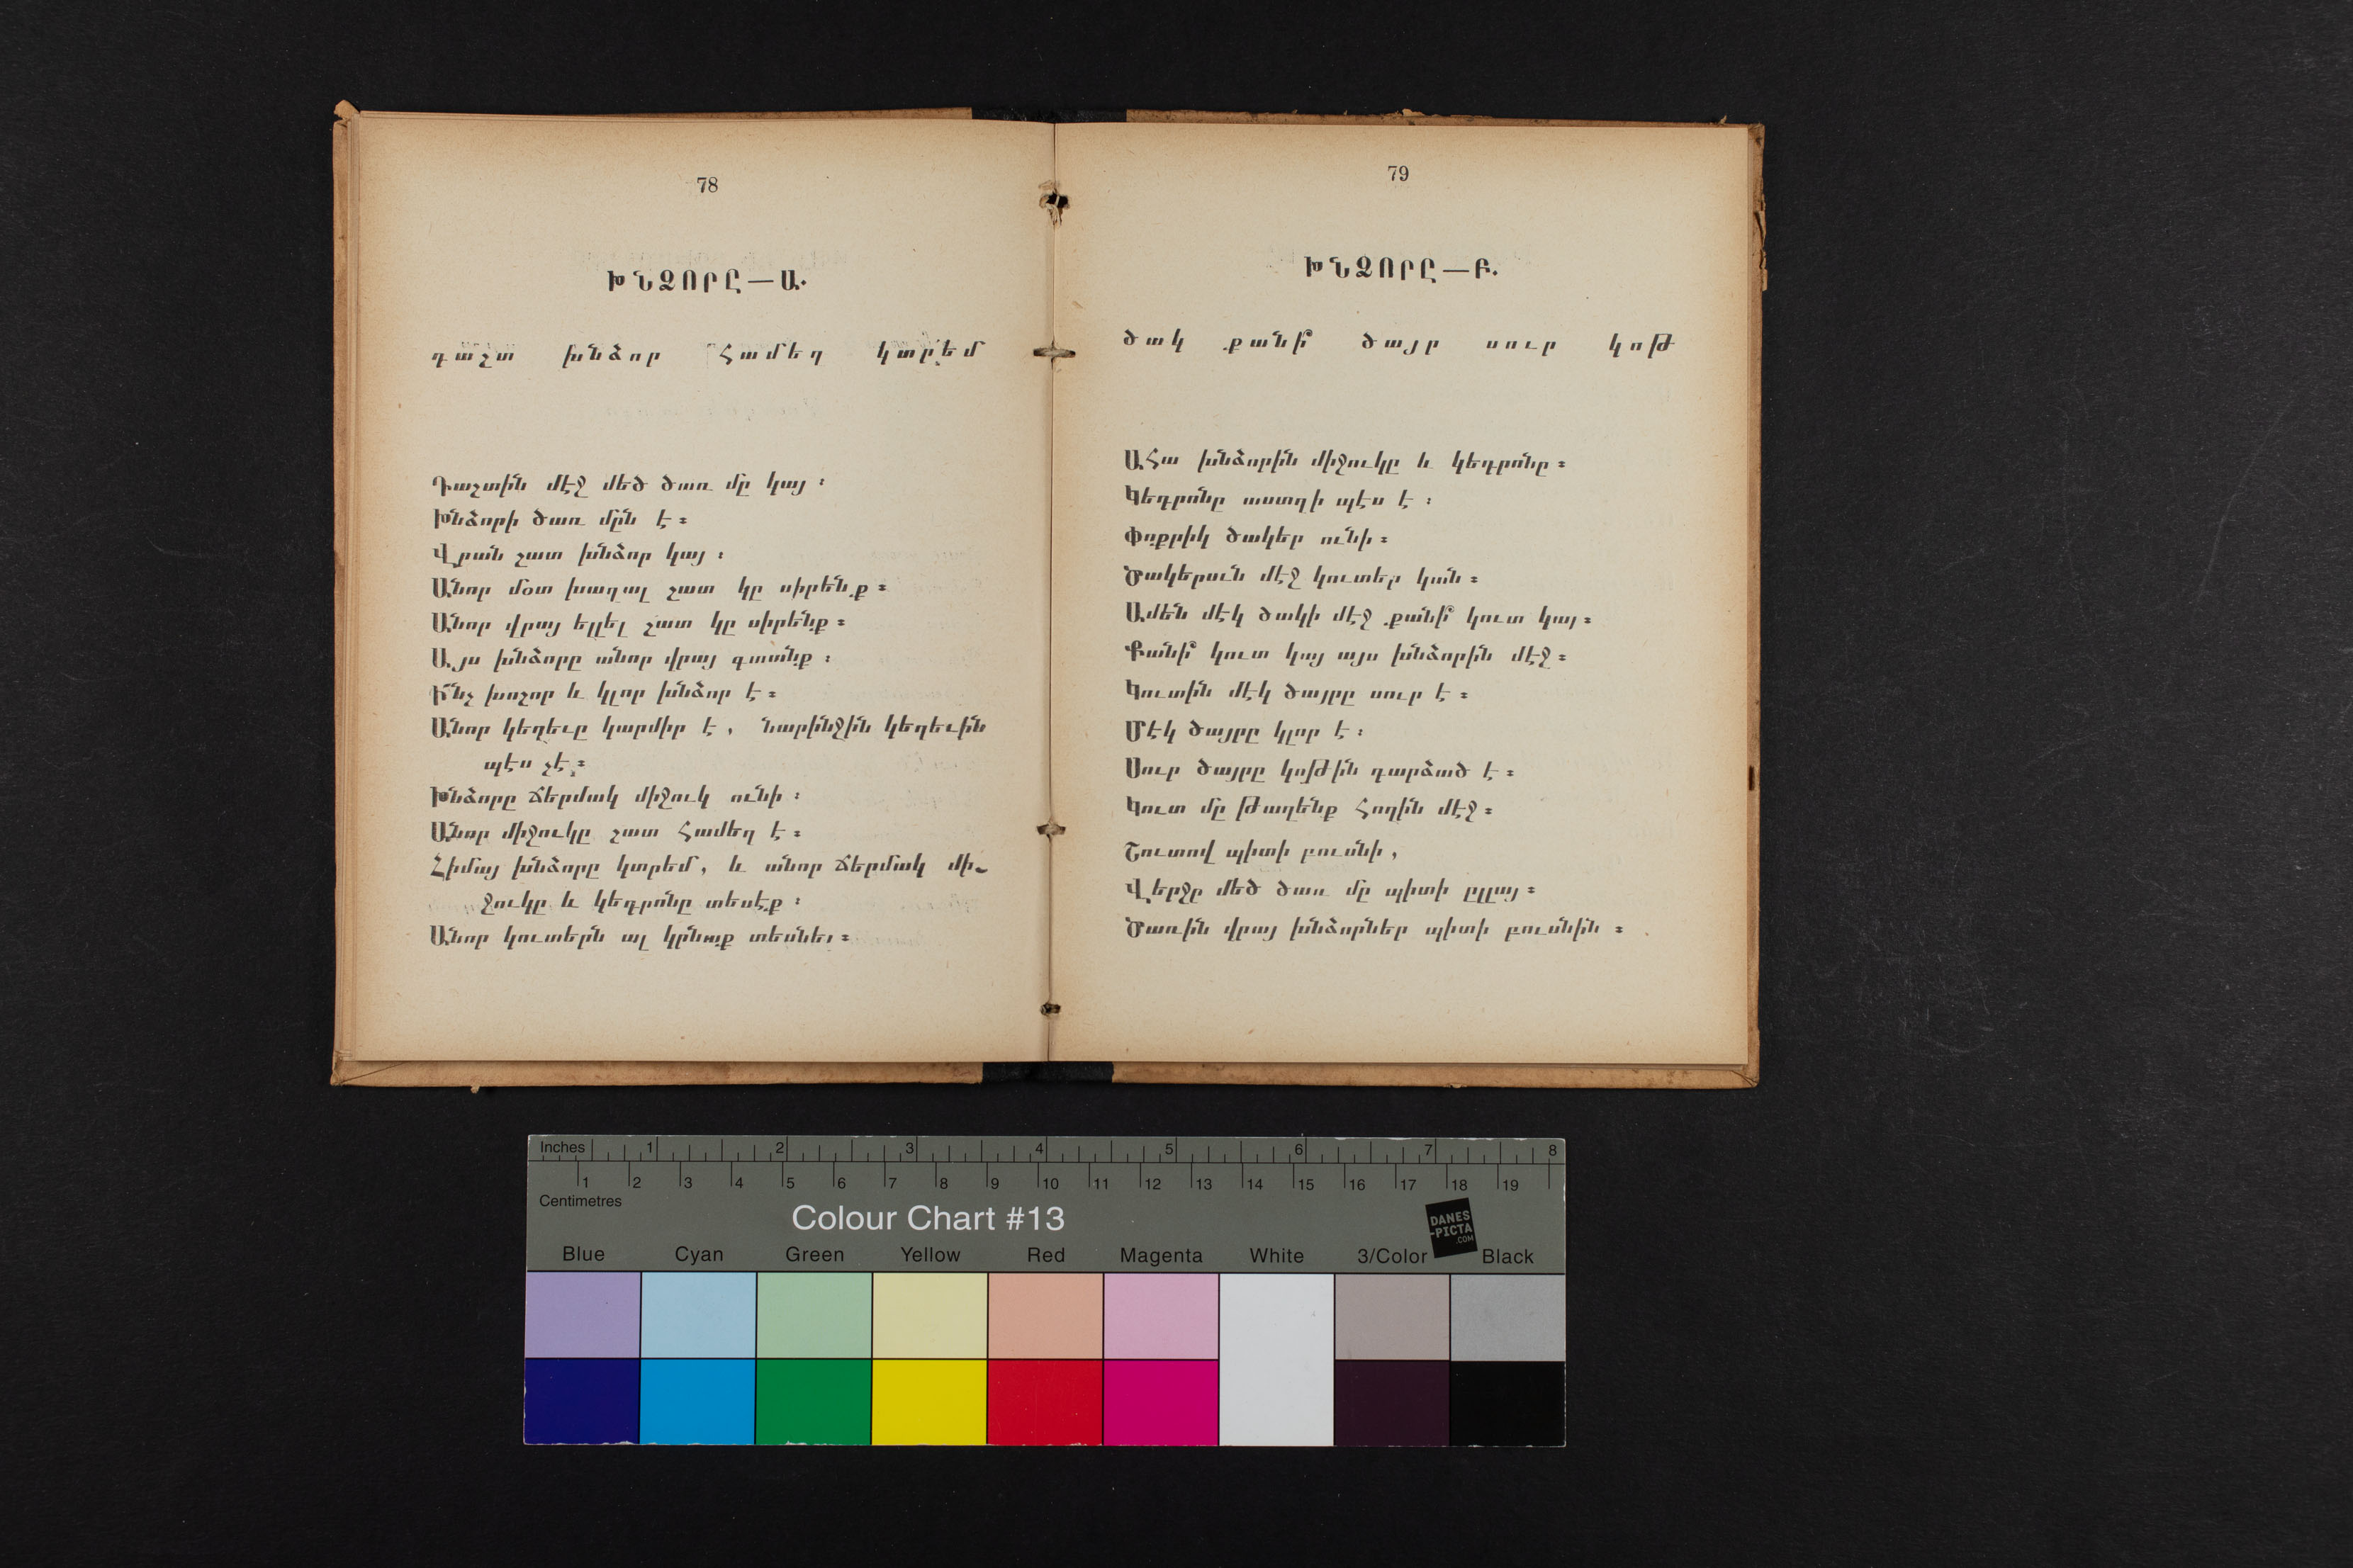 78
ԽՆՁՈՐԸ — Ա.
դաշտ խնձոր համեղ կտրեմ
Դաշտին մէջ մեծ ծառ մը կայ ։
Խնձորի ծառ մըն է ։
Վրան շատ խնձոր կայ ։
Անոր մօտ խաղալ շատ կը սիրենք ։
Անոր վրայ ելլել շատ կը սիրենք ։
Այս խնձորը անոր վրայ գտանք ։
Ի՜նչ խոշոր և կլոր խնձոր է ։
Անոր կեղեւը կարմիր է , նարինջին կեղեւին
պէս չէ ։
Խնձորը ճերմակ միջուկ ունի ։
Անոր միջուկը շատ համեղ է ։
Հիմայ խնձորը կտրեմ , և անոր ճերմակ մի-
ջուկը և կեդրոնը տեսէք ։
Անոր կուտերն ալ կրնաք տեսնել ։
79
ԽՆՁՈՐԸ — Բ.
ծակ քանի՞ ծայր սուր կոթ
Ահա խնձորին միջուկը և կեդրոնը ։
Կեդրոնը աստղի պէս է ։
Փոքրիկ ծակեր ունի ։
Ծակերուն մէջ կուտեր կան ։
Ամեն մէկ ծակի մէջ քանի՞ կուտ կայ ։
Քանի՞ կուտ կայ այս խնձորին մէջ ։
Կուտին մէկ ծայրը սուր է ։
Մէկ ծայրը կլոր է ։
Սուր ծայրը կոթին դարձած է ։
Կուտ մը թաղենք հողին մէջ ։
Շուտով պիտի բուսնի ,
Վերջը մեծ ծառ մը պիտի ըլլայ ։
Ծառին վրայ խնձորներ պիտի բուսնին ։
Inches 1 2 3 4 5 6 7 8
1 2 3 4 5 6 7 8 9 10 11 12 13 14 15 16 17 18 19
Centimetres
Colour Chart #13
DANES
-PICTA
.COM
Blue Cyan Green Yellow Red Magenta White 3/Color Black